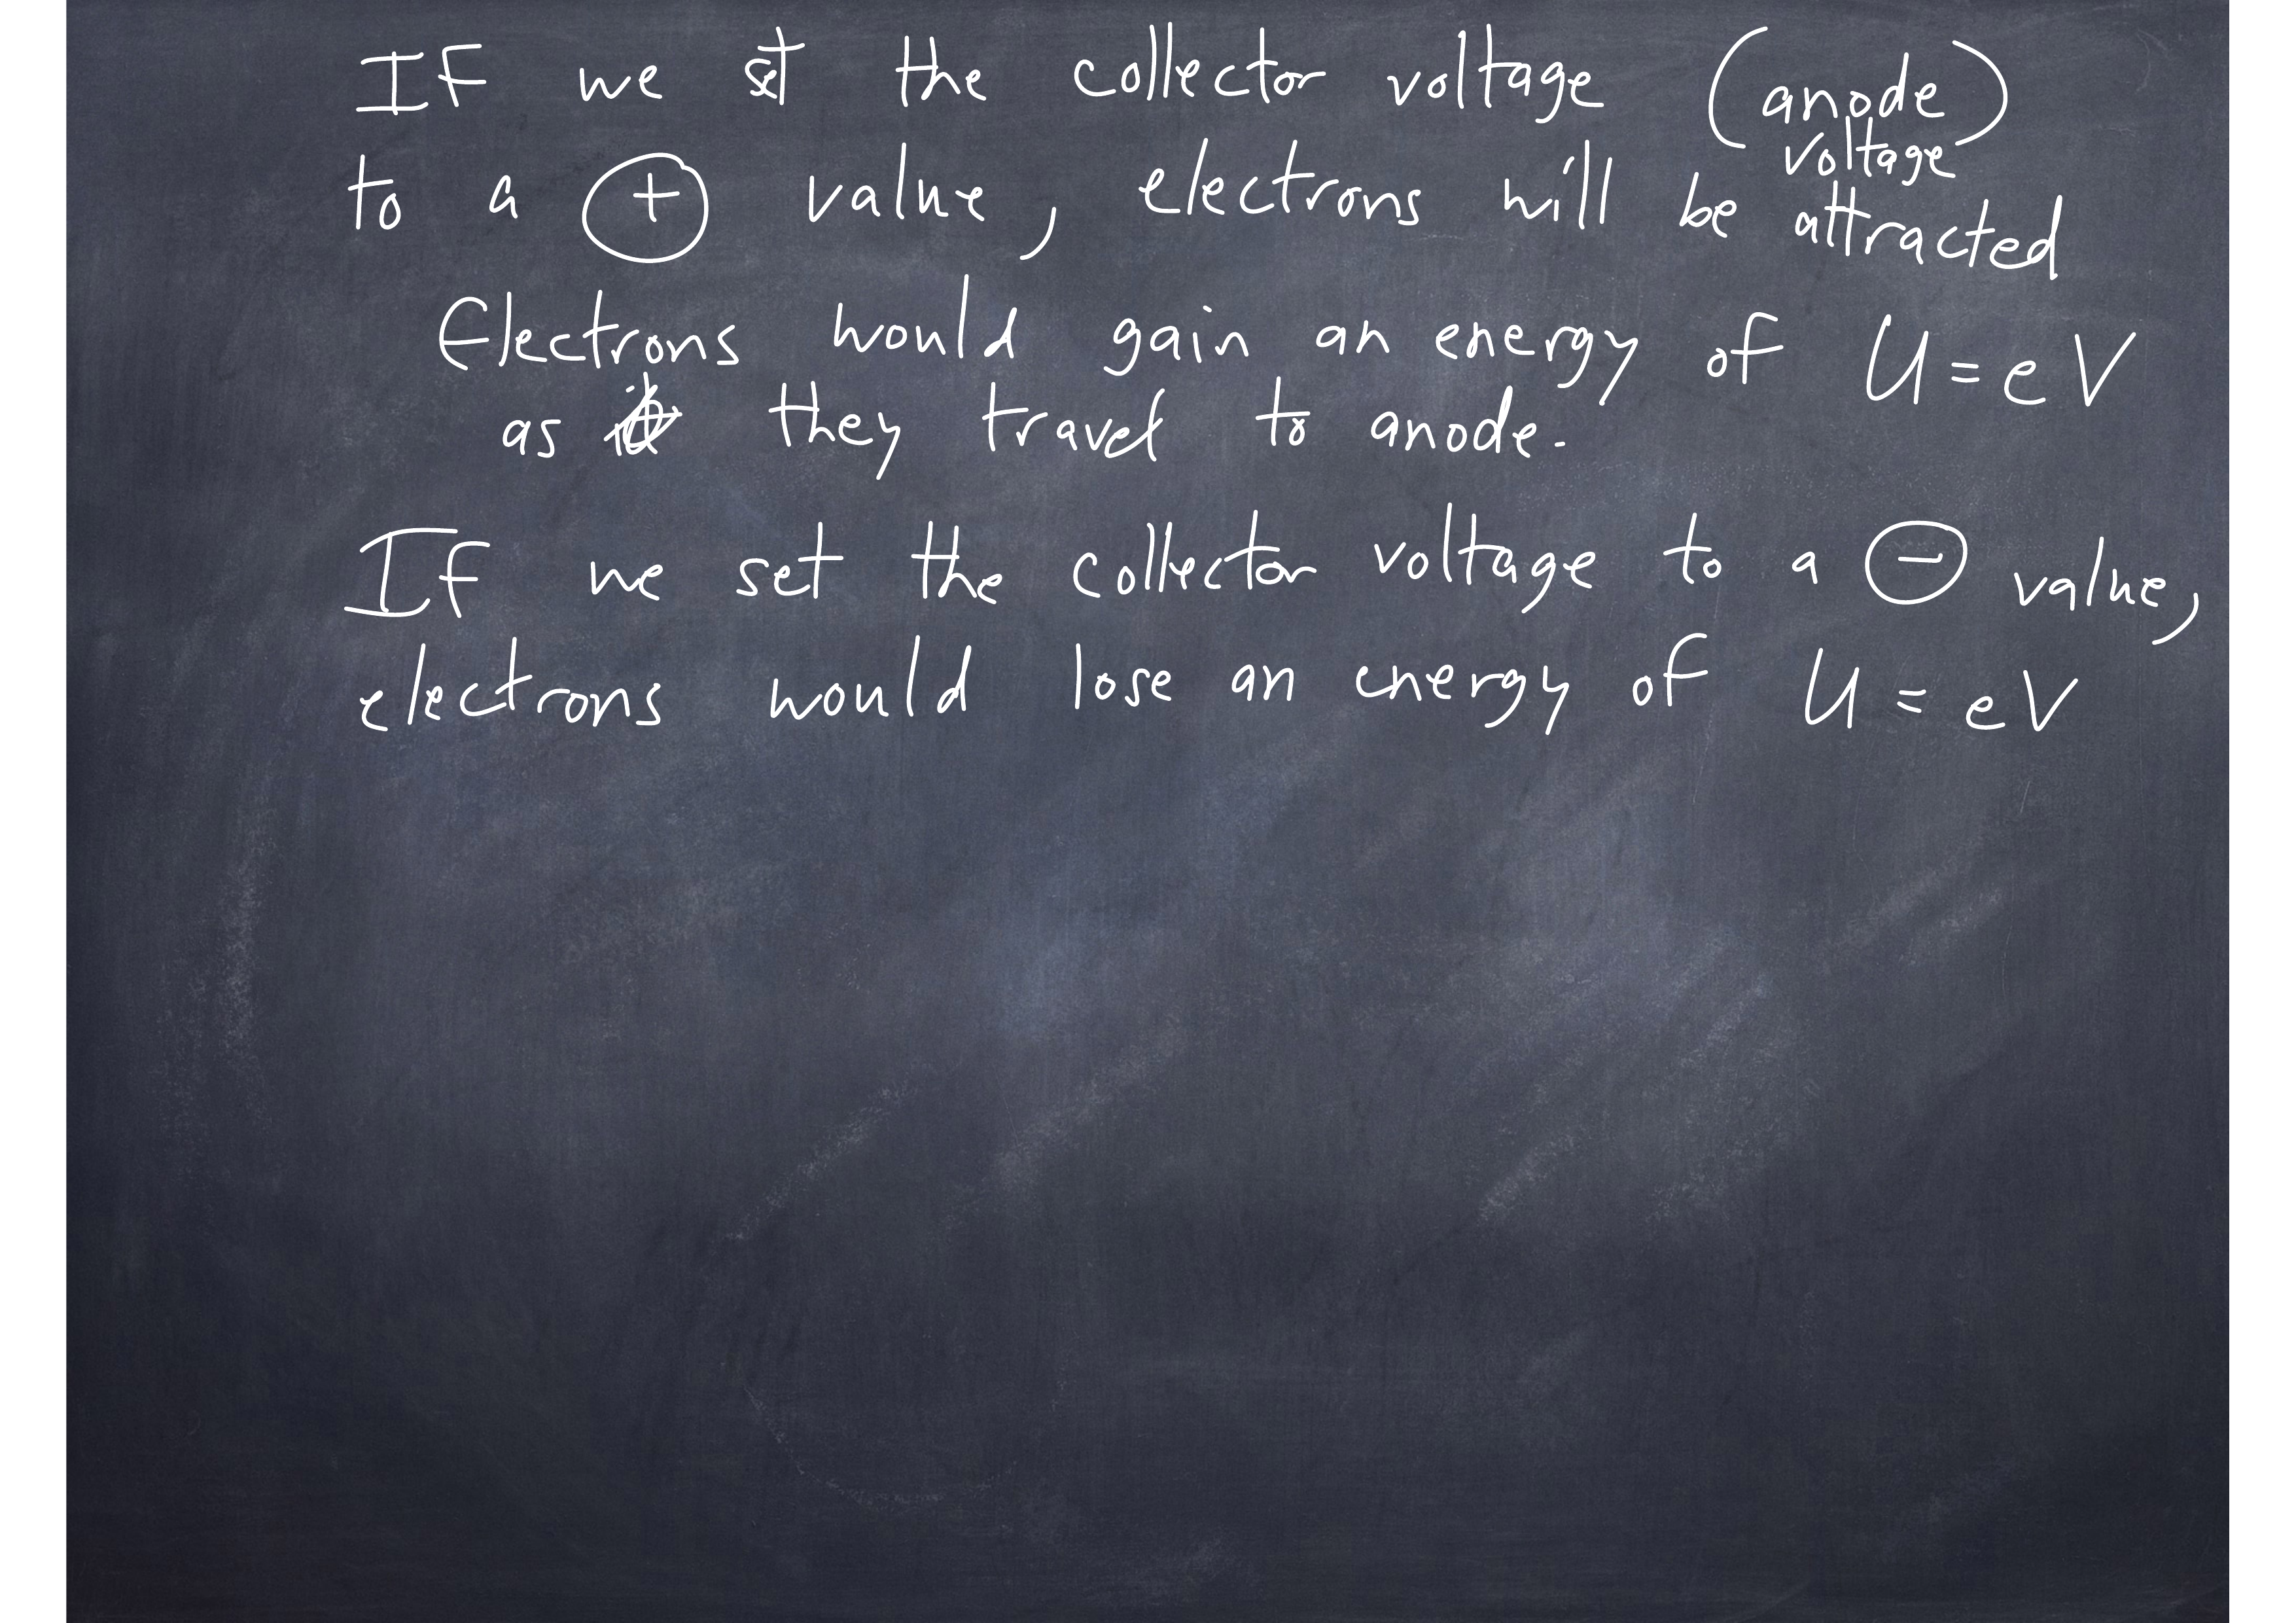 If we set the collector voltage (anode voltage)
to a ⊕ value, electrons will be attracted
Electrons would gain an energy of U = eV
as they travel to anode.
If we set the collector voltage to a ⊖ value,
electrons would lose an energy of U = eV